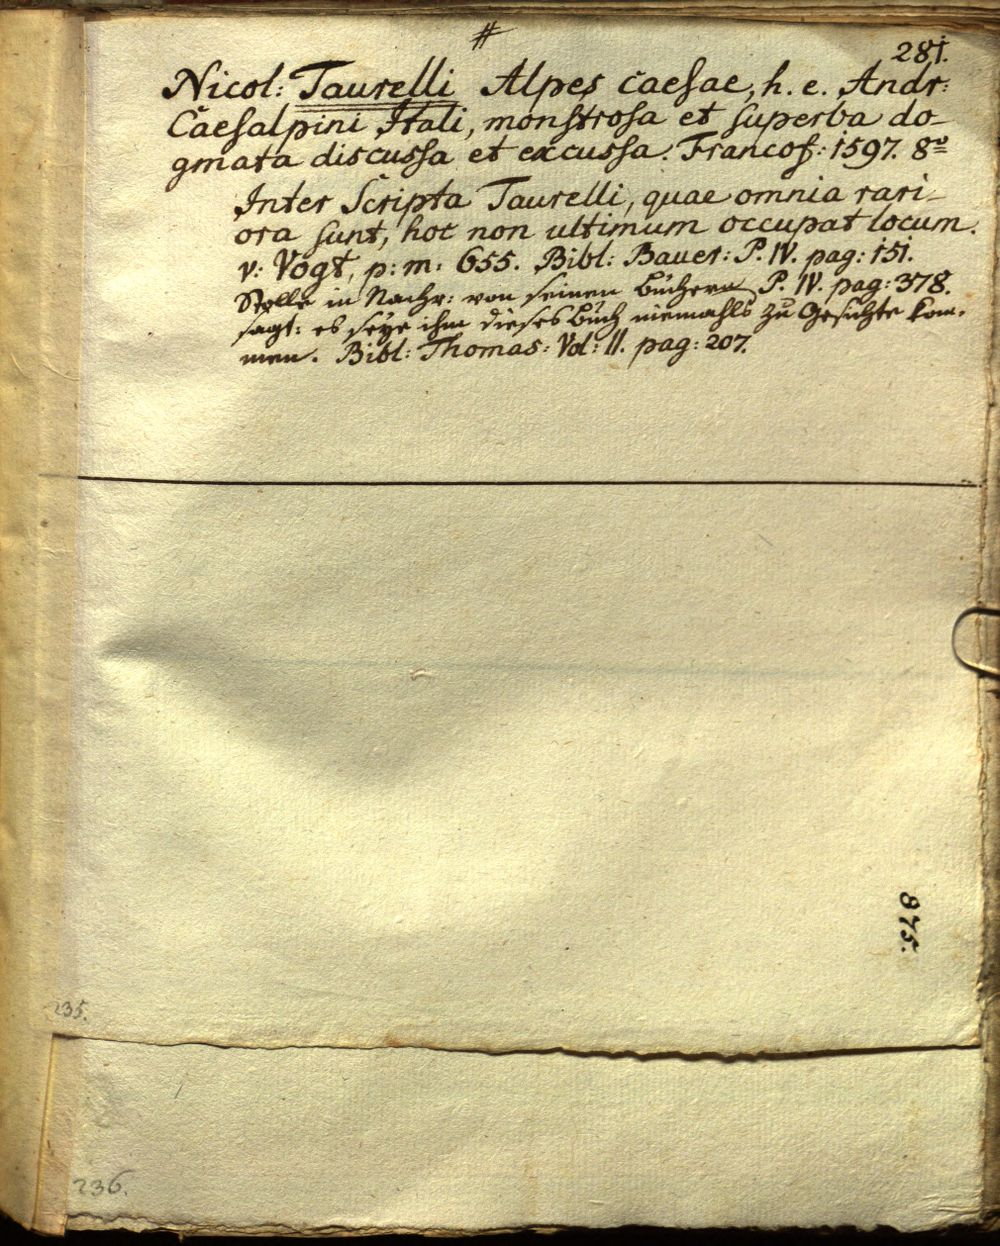 #
281.
Nicol: Taurelli Alpes caesae, h. e. Andr:
Caesalpini Itali, monstrosa et superba do-
gmata discussa et excussa. Francof: 1597. 8º
Inter Scripta Taurelli, quae omnia rari-
ora sunt, hoc non ultimum occupat locum.
v: Vogt, p: m: 655. Bibl: Bauer: P. IV. pag: 151.
Stolle in Nachr: von seinen Büchern P. IV. pag: 378.
sagt: es seye ihm dieses Buch niemahls zu Gesichte kom-
men. Bibl: Thomas: Vol: II. pag: 207.
875.
235.
236.